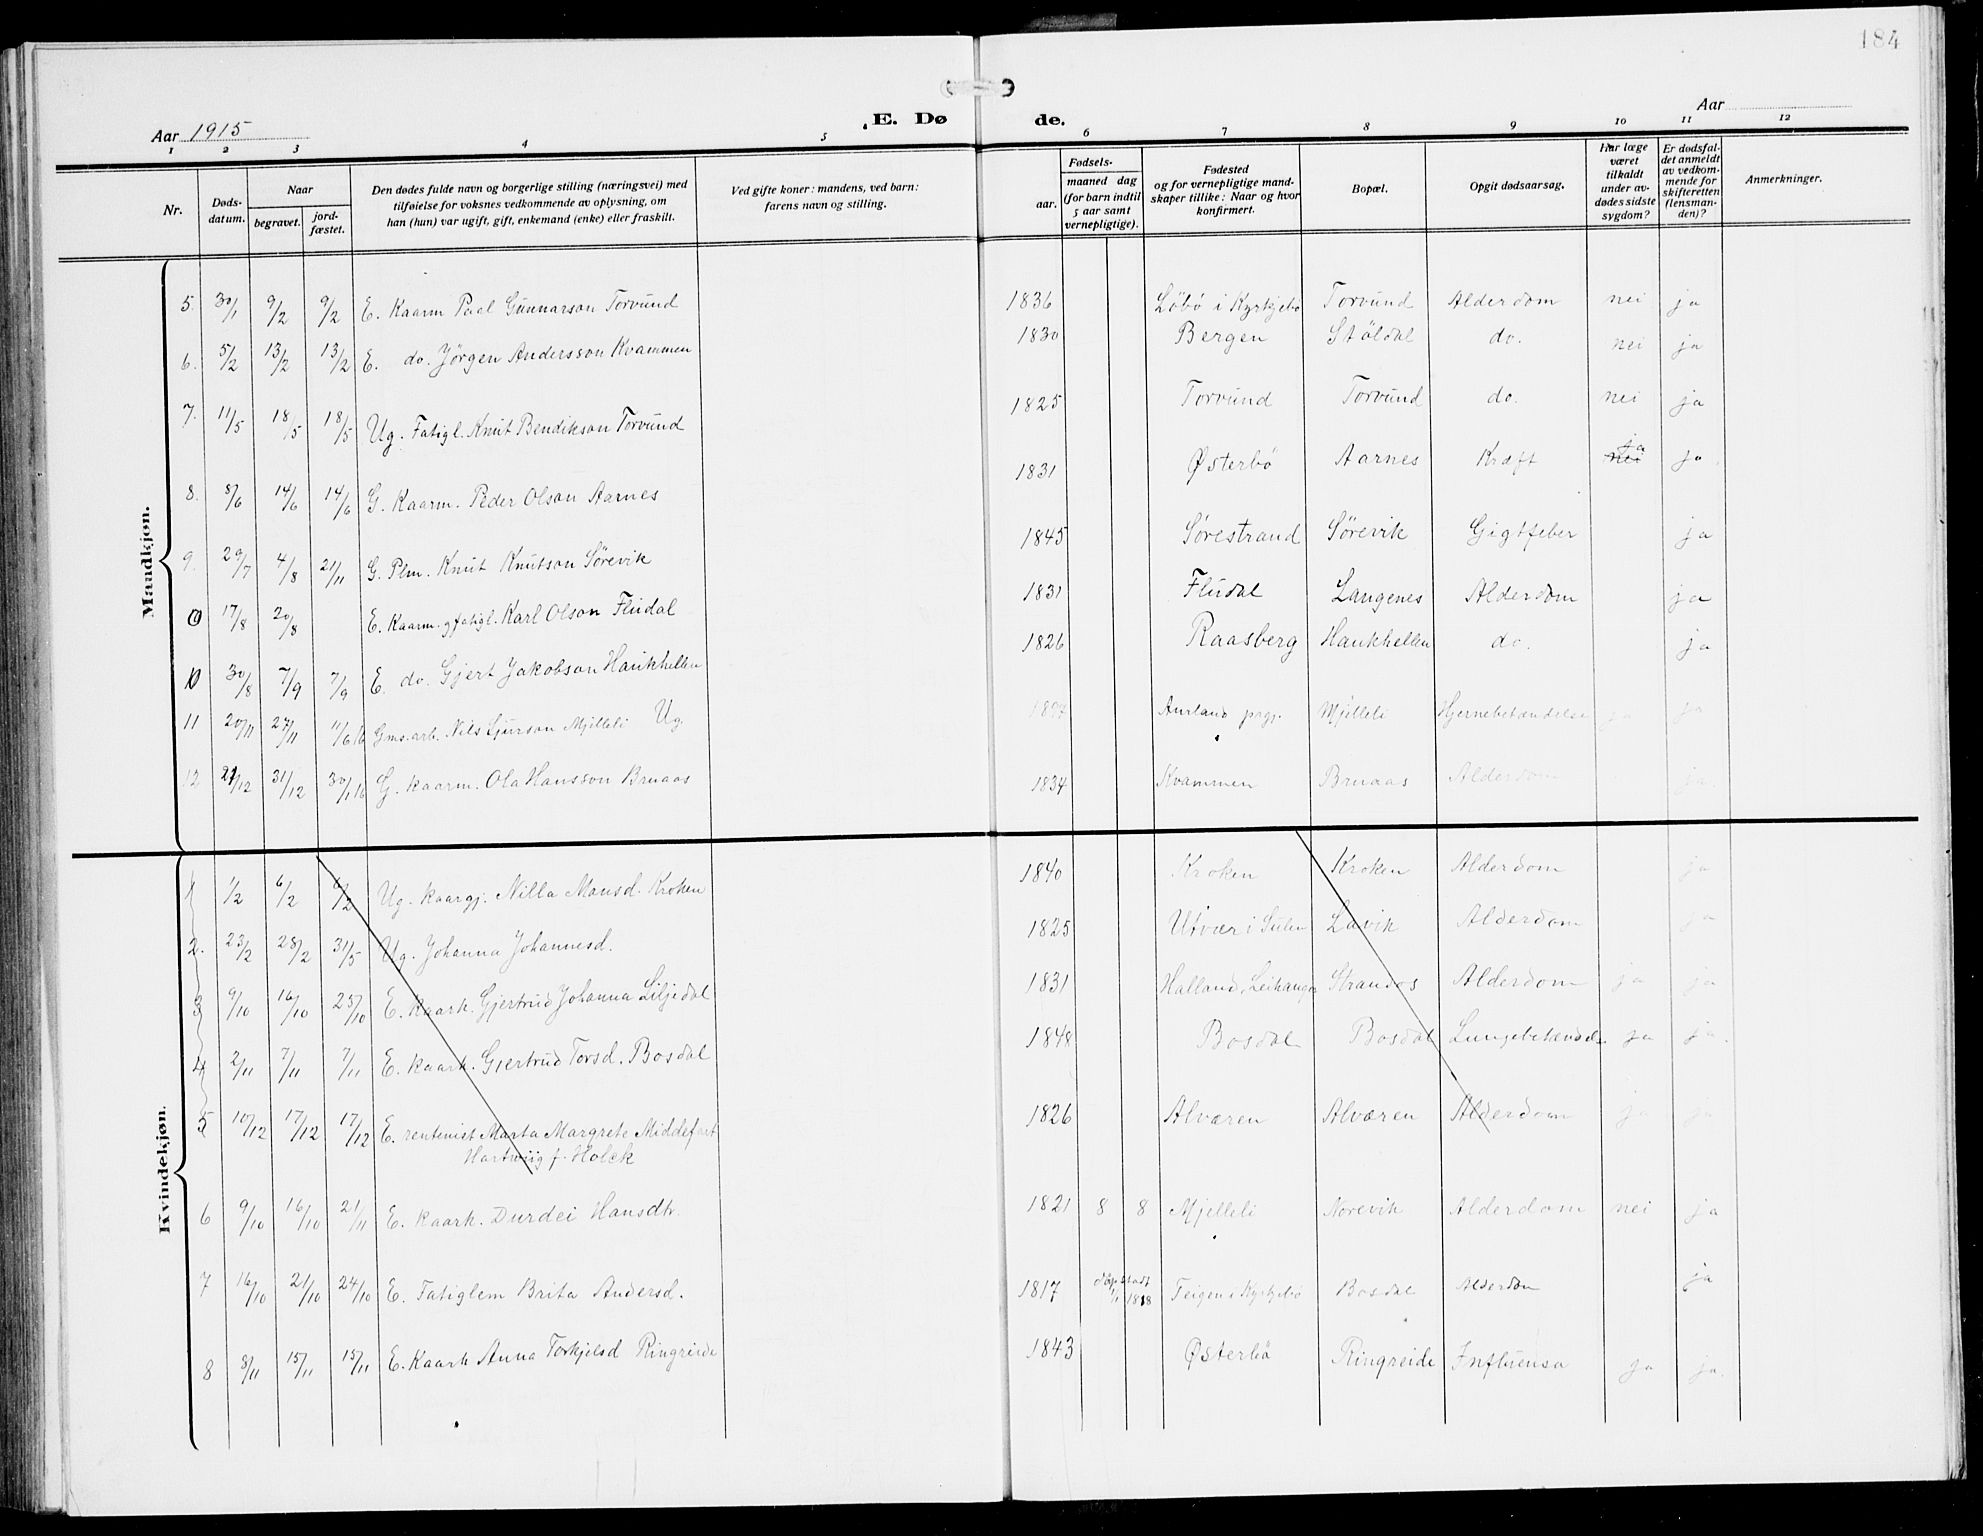 184
Aar 1915 E. Dø de. Aar
1 2 3 4 5 6 7 8 9 10 11 12
Nr. Døds-datum. Naar begravet. jord-fæstet. Den dødes fulde navn og borgerlige stilling (næringsvei) med tilføielse for voksnes vedkommende av oplysning, om han (hun) var ugift, gift, enkemand (enke) eller fraskilt. Ved gifte koner: mandens, ved barn: farens navn og stilling. Fødsels- aar. maaned dag (for barn indtil 5 aar samt vernepligtige). Fødested og for vernepligtige mand-skaper tillike: Naar og hvor konfirmert. Bopæl. Opgit dødsaarsag. Har læge været tilkaldt under av-dødes sidste sygdom? Er dødsfal-det anmeldt av vedkom-mende for skifteretten (lensman-den)? Anmerkninger.
Mandkjøn.
5. 30/1 9/2 9/2 E. Kaarm Peal Gunnarson Torvund 1836 Löbö i Kyrkjebö Torvund Alderdom nei ja
6. 5/2 13/2 13/2 E. do. Jørgen Andersson Kvammen 1830 Bergen Stöldal do. nei ja
7. 11/5 18/5 18/5 Ug. Fatigl. Knut Bendikson Torvund 1825 Torvund Torvund do. nei ja
8. 8/6 14/6 14/6 G. Kaarm. Peder Olson Aarnes 1831 Østerbö Aarnes Kræft nei ja ja
9. 29/7 4/8 21/11 G. Plm. Knut Knutson Sörevik 1845 Sörestrand Sörevik Gigtfeber ja
17/8 20/8 E. Kaarm. g fatigl. Karl Olson Fludal 1831 Fludal Langenes Alderdom ja
10 30/8 7/9 7/9 E. do. Gjert Jakobson Haukhellen 1826 Raasberg Haukhellen do. ja
11 20/11 27/11 11/6 16 Gms. arb. Nils Sjurson Mjelleli Ug. Aurland prgj. Mjelleli Hjernebetændelse ja ja
12 21/12 31/12 30/1 16 G. kaarm. Ola Hansson Bruaas 1834 Kvammen Bruaas Alderdom ja.
Kvindekjøn.
1 1/2 6/2 6/2 Ug. kaargj. Nilla Monsd. Kroken 1840 Kroken Kroken Alderdom ja
2. 23/2 28/2 31/5 Ug. Johanna Johannesd. 1825 Utvær i Sulen Lavik Alderdom ja
3 9/10 16/10 25/10 E. kaark. Gjertrud Johanna Liljedal 1831 Halland, Leikanger Strandos Alderdom ja ja
4 2/11 7/11 7/11 E. kaark. Gjertrud Torsd. Bosdal 1848 Bosdal Bosdal Lungebetændels. ja ja.
5 10/12 17/12 17/12 E. rentenist Marta Margrete Middefart 1826 Alværen Alværen Alderdom ja ja
Hartwiig f. Holck
6 9/10 16/10 21/11 E. kaark. Durdei Hansdtr. 1821 8 8 Mjelleli Norevik Alderdom nei ja
7 16/10 21/10 24/10 E. Fatiglem Brita Andersd. 1817 döp stadf 1/1 1818 Teigen i Kyrkjebö Bosdal Alderdom ja
8 8/11 15/11 15/11 E. Kaark Anna Torkjelsd Ringreide 1843 Østerbö Ringreide Influensa ja ja.